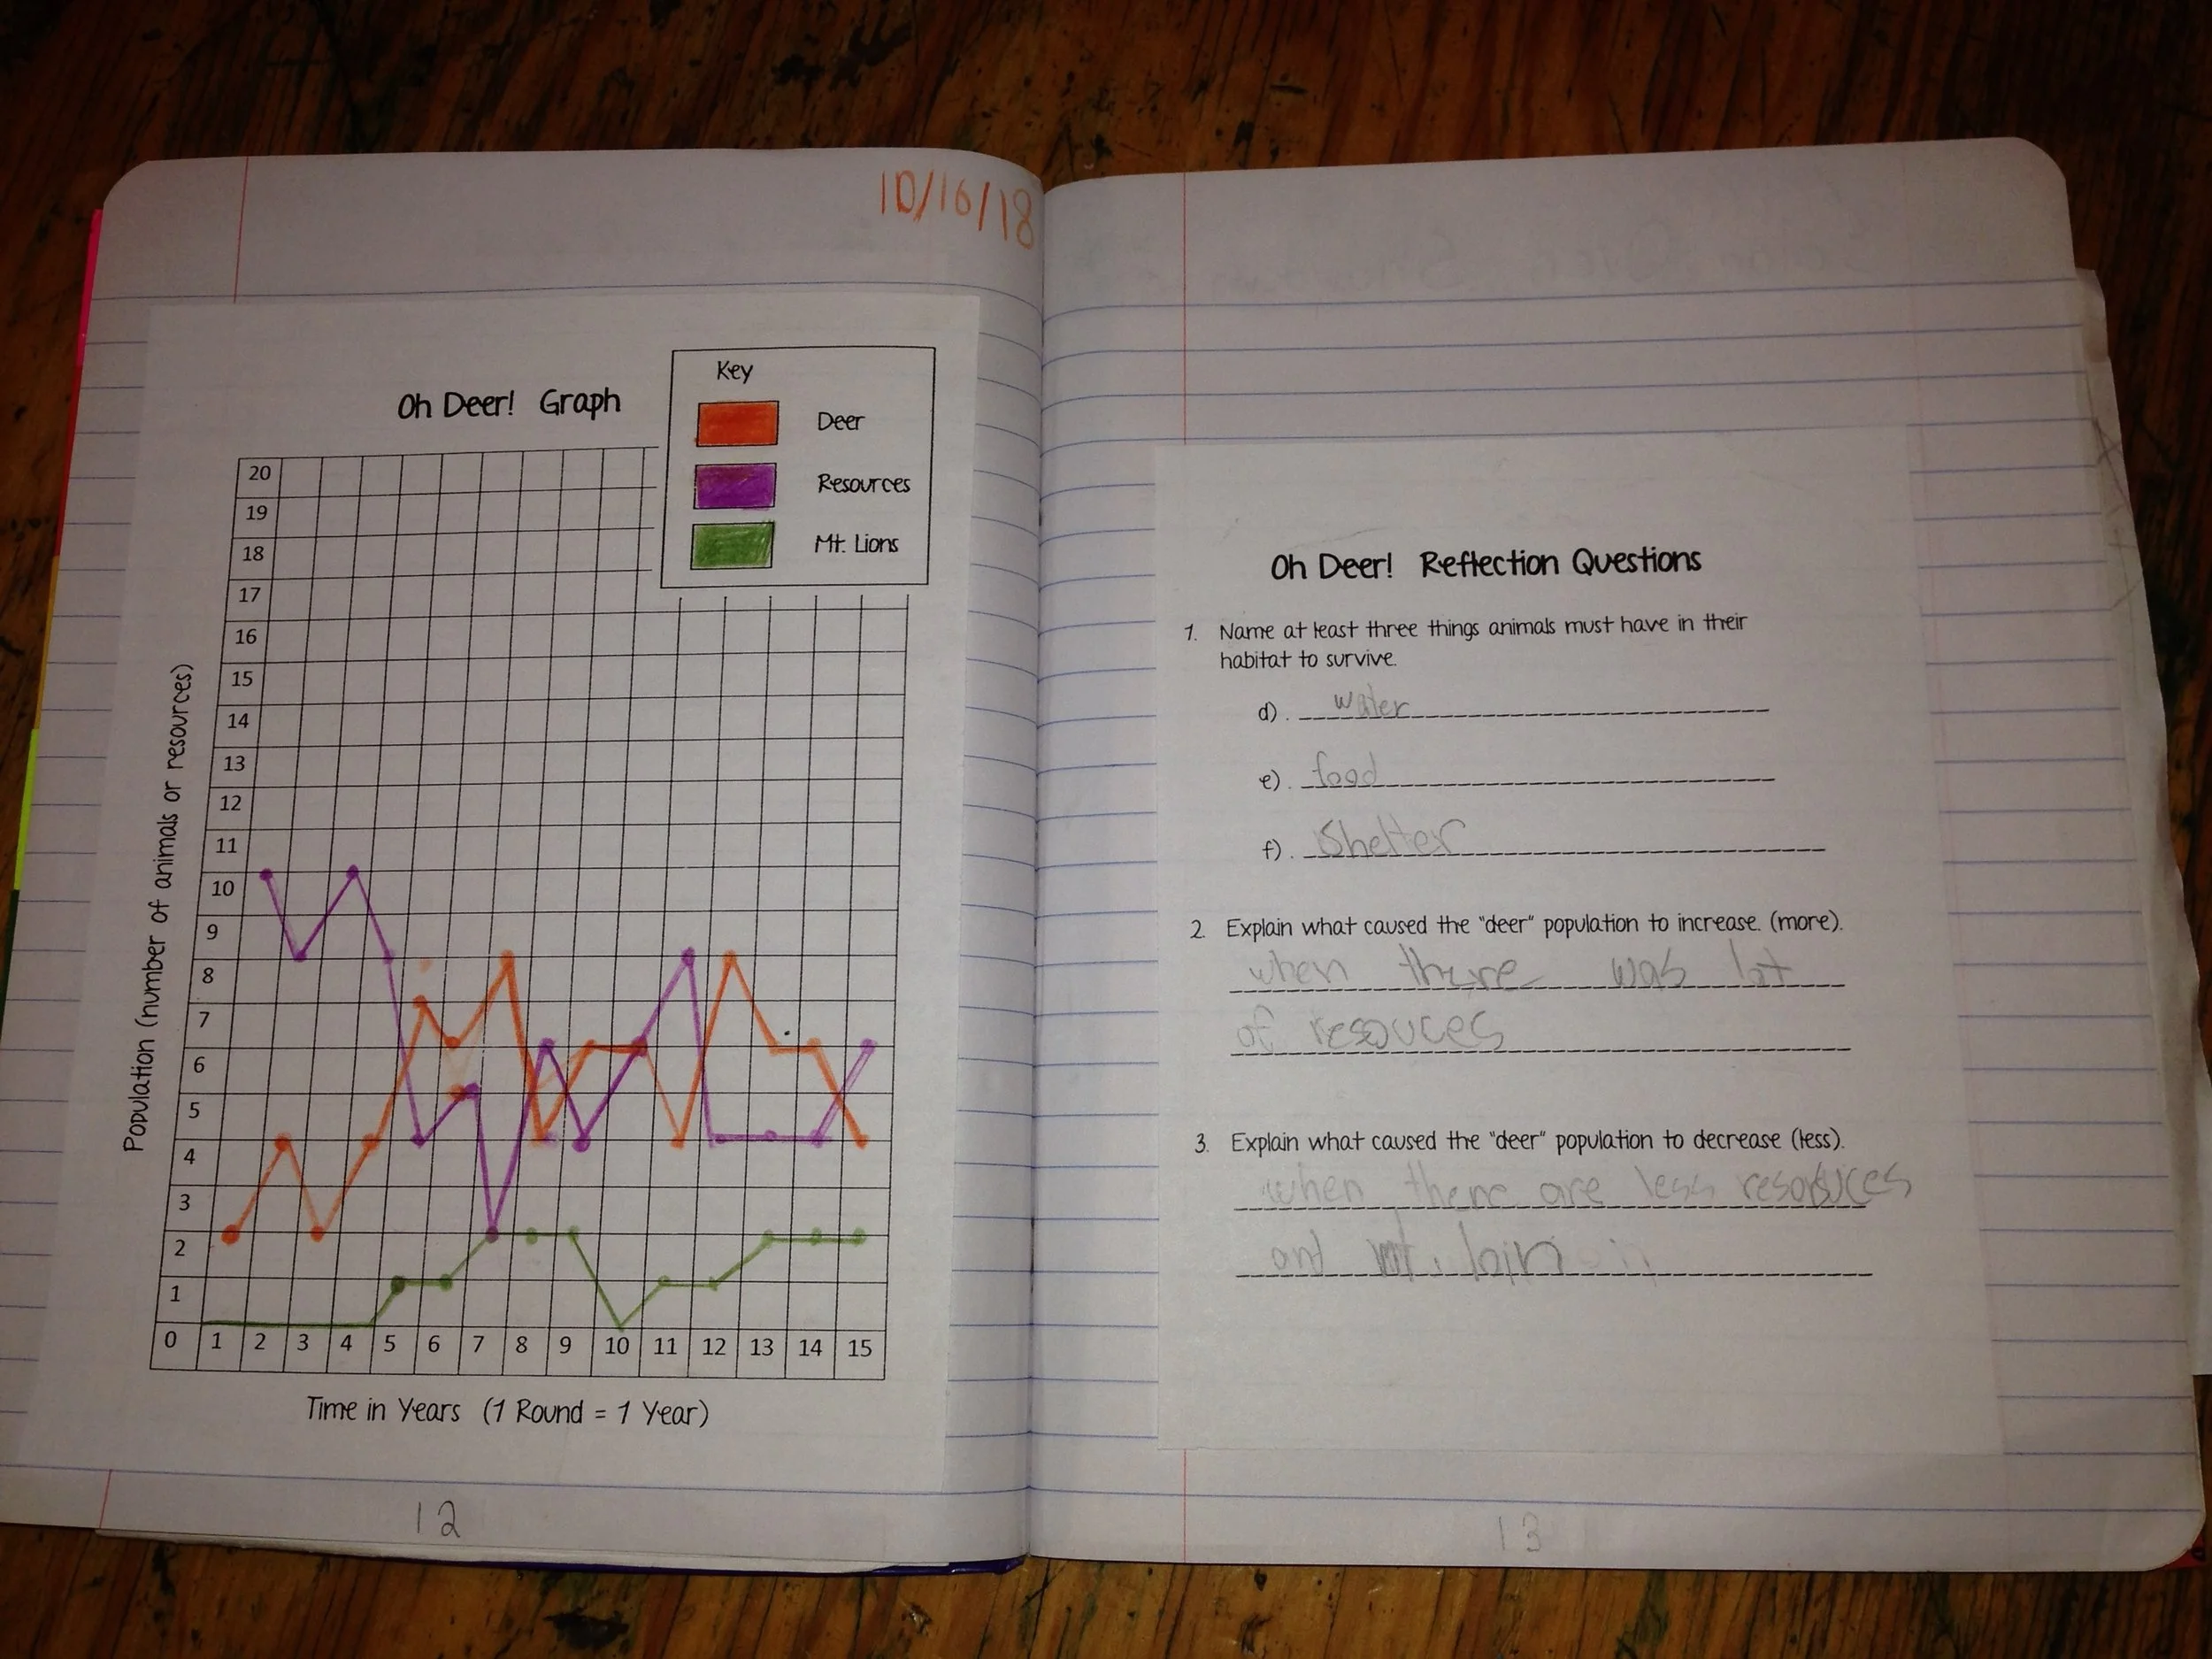 10/16/18
Oh Deer! Graph
Key
Deer
Resources
Mt. Lions
Population (number of animals or resources)
20
19
18
17
16
15
14
13
12
11
10
9
8
7
6
5
4
3
2
1
0 1 2 3 4 5 6 7 8 9 10 11 12 13 14 15
Time in Years (1 Round = 1 Year)
12
Oh Deer! Reflection Questions
1. Name at least three things animals must have in their
habitat to survive.
d). water
e). food
f). Shelter
2. Explain what caused the "deer" population to increase. (more).
when there was lot
of resouces
3. Explain what caused the "deer" population to decrease (less).
when there are less resources
and mt. loin
13